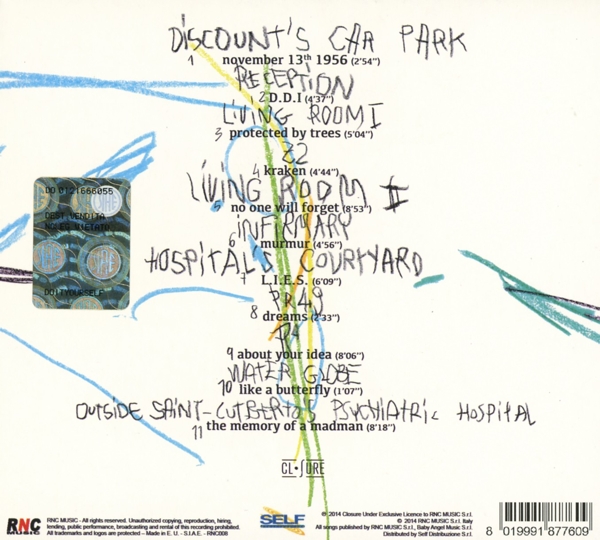 DISCOUNT'S CAR PARK
1 november 13th 1956 (2'54")
RECEPTION
2 D.D.I (4'37")
LIVING ROOM I
3 protected by trees (5'04")
Z2
4 kraken (4'44")
LIVING ROOM II
5 no one will forget (8'53")
INFIRMARY
6 murmur (4'56")
HOSPITAL'S COURTYARD
7 L.I.E.S. (6'09")
PR49
8 dreams (2'33")
P4
9 about your idea (8'06")
WATER GLOBE
10 like a butterfly (1'07")
OUTSIDE SAINT-CUTBERTO'S PSYCHIATRIC HOSPITAL
11 the memory of a madman (8'18")
CL•SURE
DD 0121666055
DEST VENDITA
NOLEG VIETATO
SIAE
DOITYOURSELF
RNC MUSIC
RNC MUSIC - All rights reserved. Unauthorized copying, reproduction, hiring,
lending, public performance, broadcasting and rental of this recording prohibited.
All trademarks and logos are protected – Made in E. U. - S.I.A.E. - RNC008
SELF
℗ 2014 Closure Under Exclusive Licence to RNC MUSIC S.r.l.
© 2014 RNC MUSIC S.r.l. Italy
All songs published by RNC MUSIC S.r.l., Baby Angel Music S.r.l.
Distributed by Self Distribuzione S.r.l.
8 019991 877609